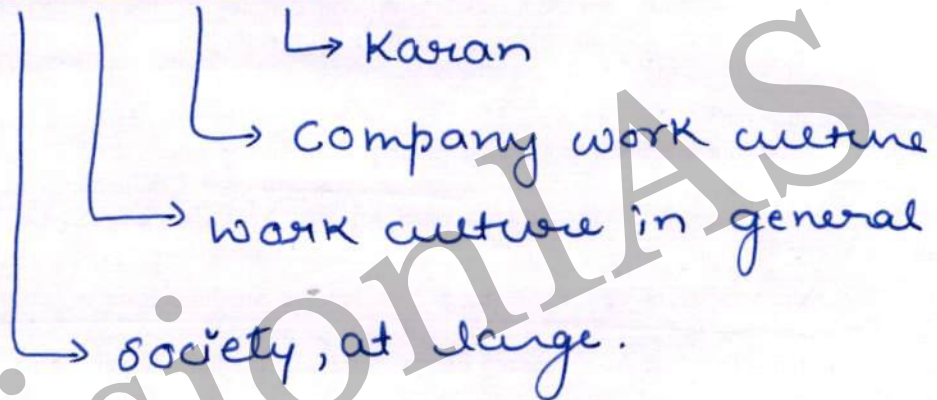 Karan
Company work culture
work culture in general
society, at large.
VisionIAS